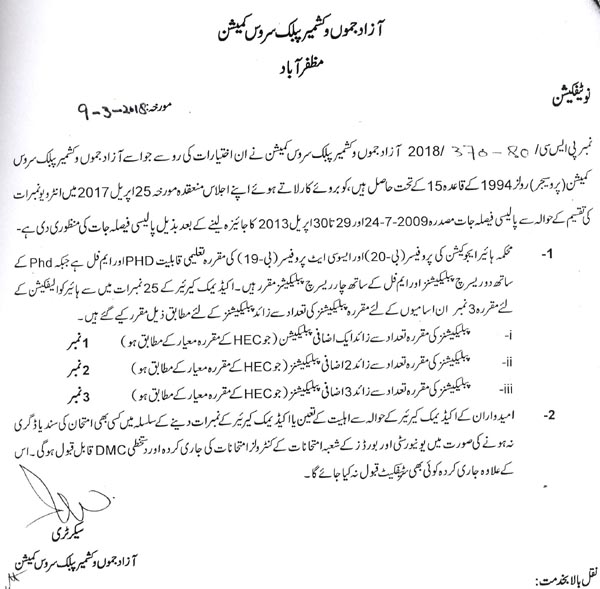 آزاد جموں و کشمیر پبلک سروس کمیشن
مظفرآباد
نوٹیفکیشن
مورخہ: 9-3-2018
نمبر پی ایس سی/ 370-80 /2018 آزاد جموں و کشمیر پبلک سروس کمیشن نے ان اختیارات کی رو سے جو اسے آزاد جموں و کشمیر پبلک سروس
کمیشن (پروسیجر) رولز 1994 کے قاعدہ 15 کے تحت حاصل ہیں، کو بروئے کار لاتے ہوئے اپنے اجلاس منعقدہ مورخہ 25 اپریل 2017 میں انٹرویو نمبرات
کی تقسیم کے حوالہ سے پالیسی فیصلہ جات مصدرہ 2009-7-24 اور 29 تا 30 اپریل 2013 کا جائزہ لینے کے بعد بذیل پالیسی فیصلہ جات کی منظوری دی ہے۔
1- محکمہ ہائیر ایجوکیشن کی پروفیسر (بی-20) اور ایسوسی ایٹ پروفیسر (بی-19) کی مقررہ تعلیمی قابلیت PHD اور ایم فل ہے جبکہ Phd کے
ساتھ دو ریسرچ پبلیکیشنز اور ایم فل کے ساتھ چار ریسرچ پبلیکیشنز مقرر ہیں۔ اکیڈیمک کیرئیر کے 25 نمبرات میں سے ہائیر کوالیفکیشن کے
لئے مقررہ 3 نمبر ان اسامیوں کے لئے مقررہ پبلیکیشنز کی تعداد سے زائد پبلیکیشنز کے لئے مطابق ذیل مقرر کیے گئے ہیں۔
i- پبلیکیشنز کی مقررہ تعداد سے زائد ایک اضافی پبلیکیشن (جو HEC کے مقررہ معیار کے مطابق ہو) 1 نمبر
ii- پبلیکیشنز کی مقررہ تعداد سے زائد 2 اضافی پبلیکیشنز (جو HEC کے مقررہ معیار کے مطابق ہو) 2 نمبر
iii- پبلیکیشنز کی مقررہ تعداد سے زائد 3 اضافی پبلیکیشنز (جو HEC کے مقررہ معیار کے مطابق ہو) 3 نمبر
2- امیدواران کے اکیڈیمک کیرئیر کے حوالہ سے اہلیت کے تعین یا اکیڈیمک کیرئیر کے نمبرات دینے کے سلسلہ میں کسی بھی امتحان کی سند یا ڈگری
نہ ہونے کی صورت میں یونیورسٹی اور بورڈز کے شعبہ امتحانات کے کنٹرولر امتحانات کی جاری کردہ اور دستخطی DMC قابل قبول ہوگی۔ اس
کے علاوہ جاری کردہ کوئی بھی سرٹیفکیٹ قبول نہ کیا جائے گا۔
سیکرٹری
آزاد جموں و کشمیر پبلک سروس کمیشن
نقل بالا بخدمت: